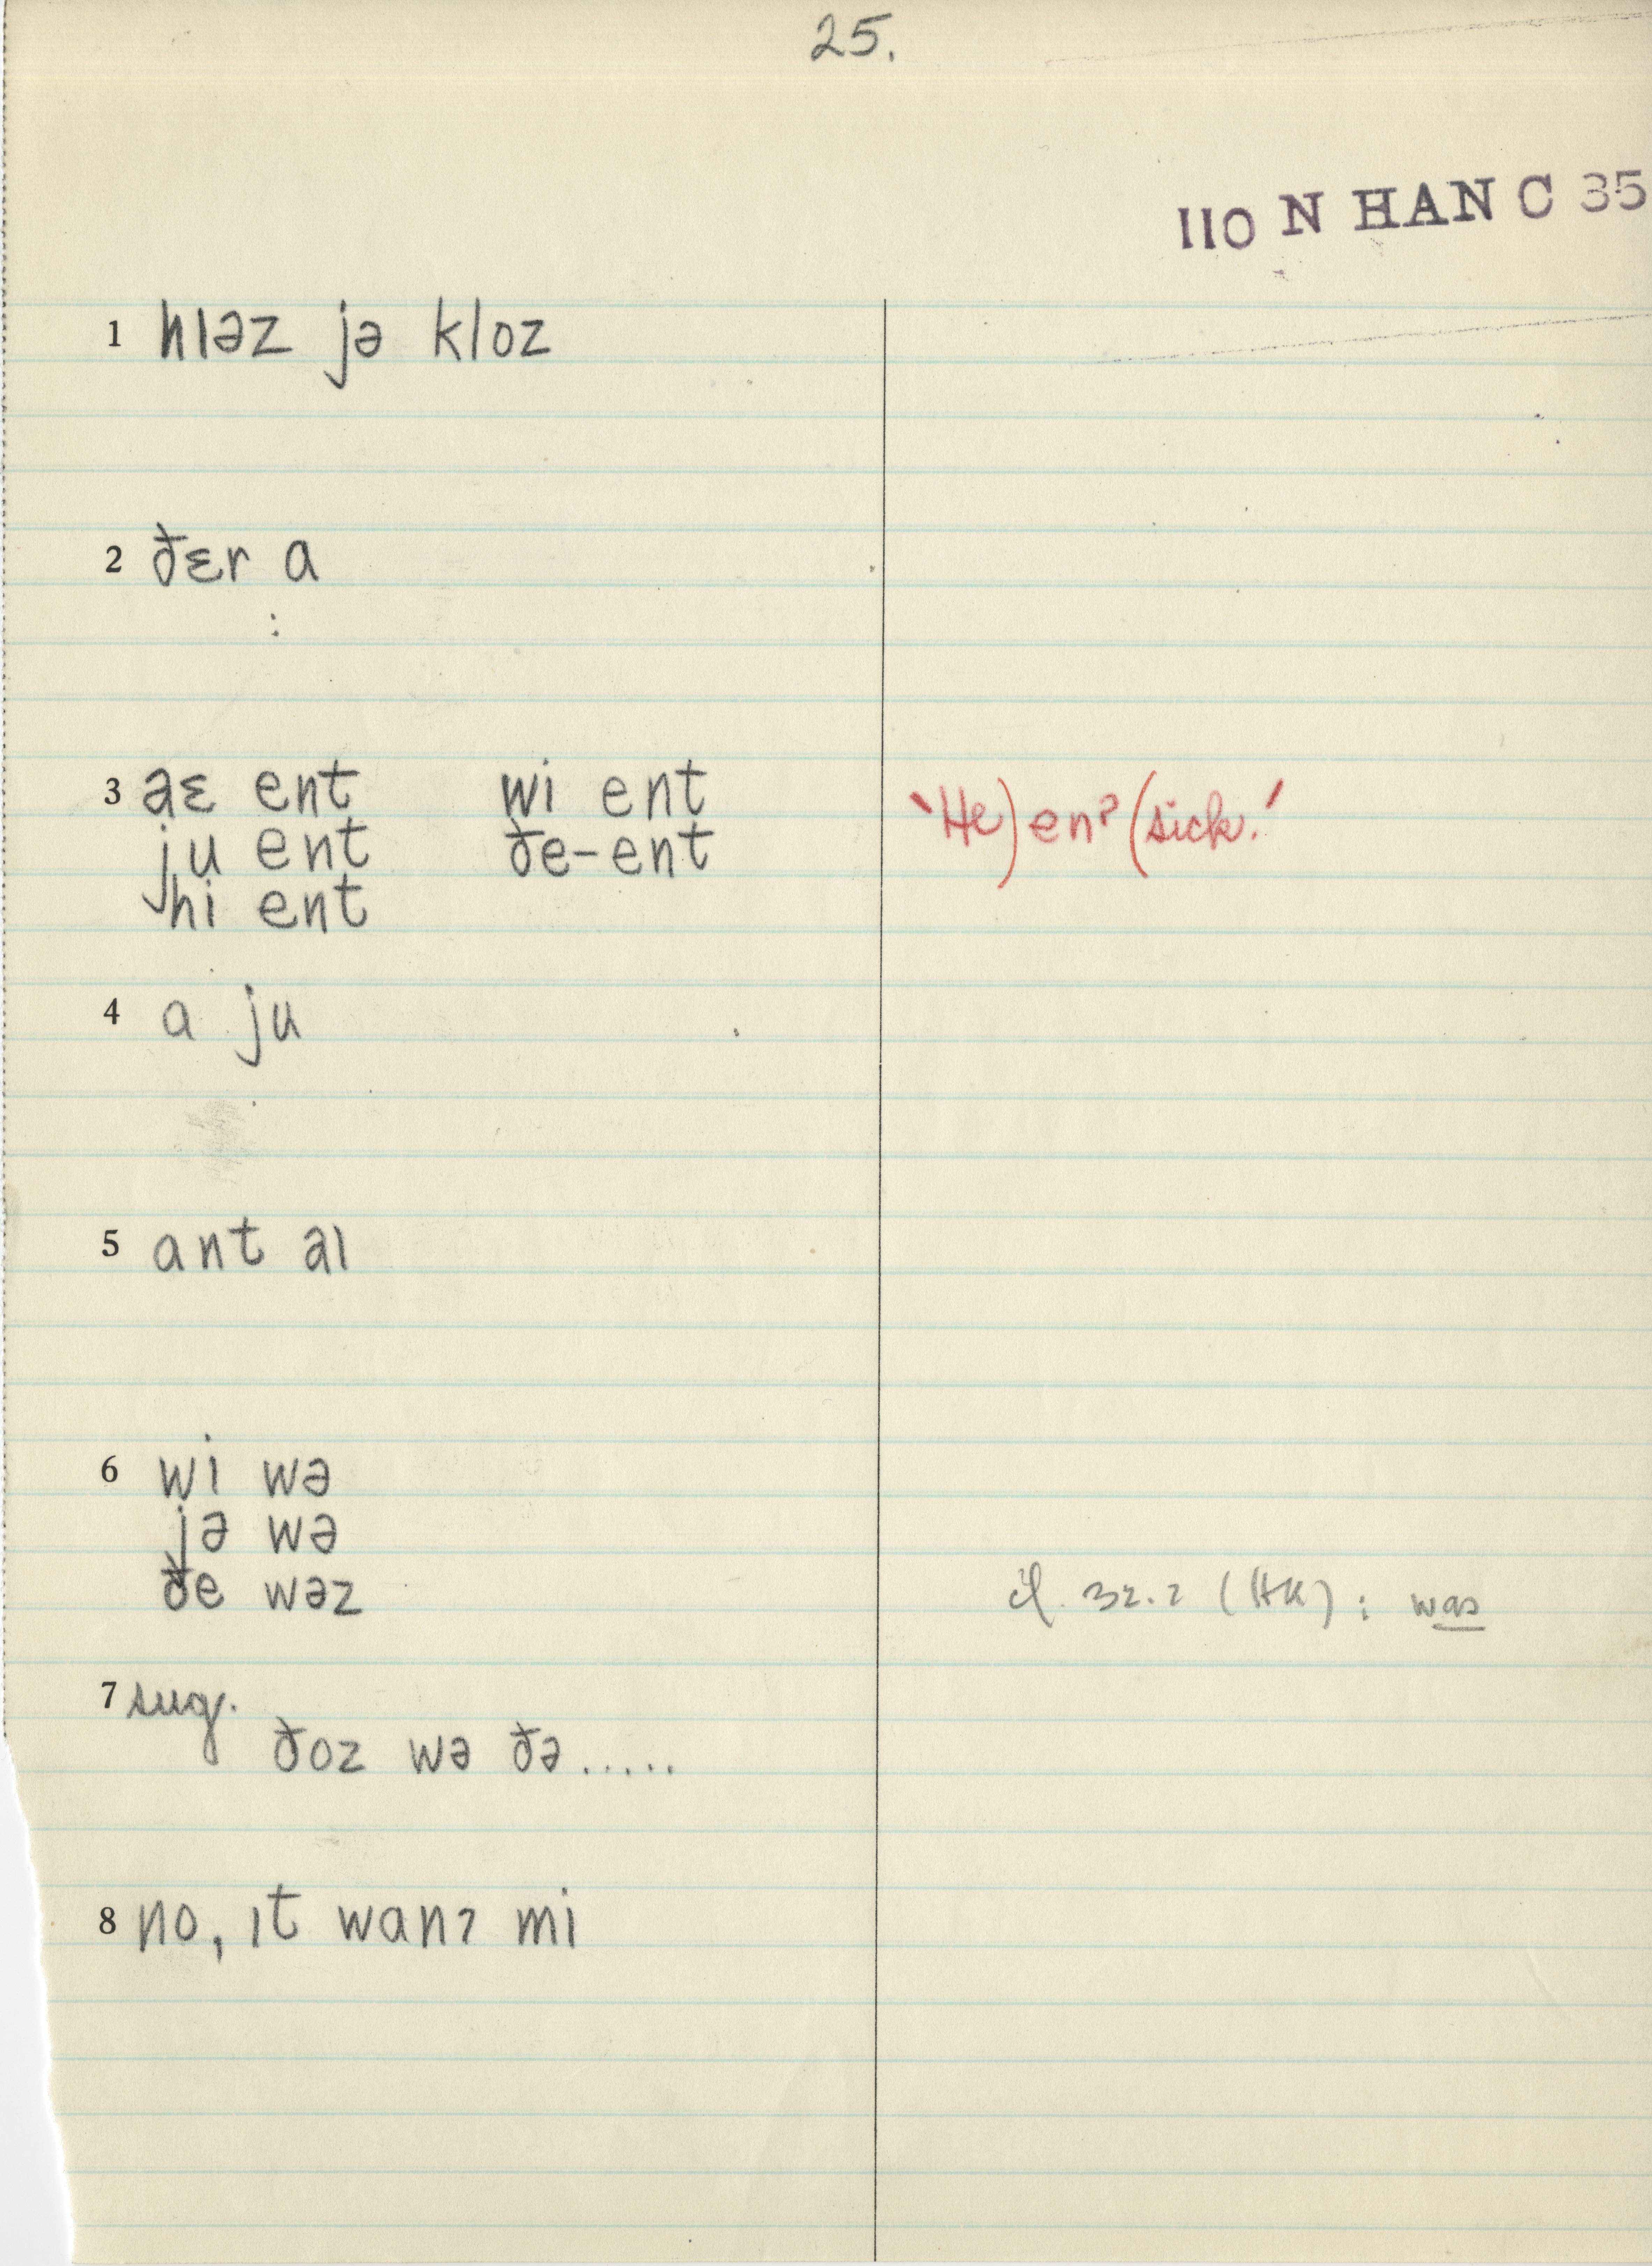 25.
110 N HAN C 35
1 hɪəz jə kloz
2 ðɛr a
:
3 aɛ ent wi ent
ju ent ðe-ent
hi ent
'He) enʔ (sick.'
4 a ju
5 ant aɪ
6 wi wə
jə wə
ðe wəz
cf. 32.2 (HK): was
7 sug.
ðoz wə ðə.....
8 no, ɪt wanʔ mi